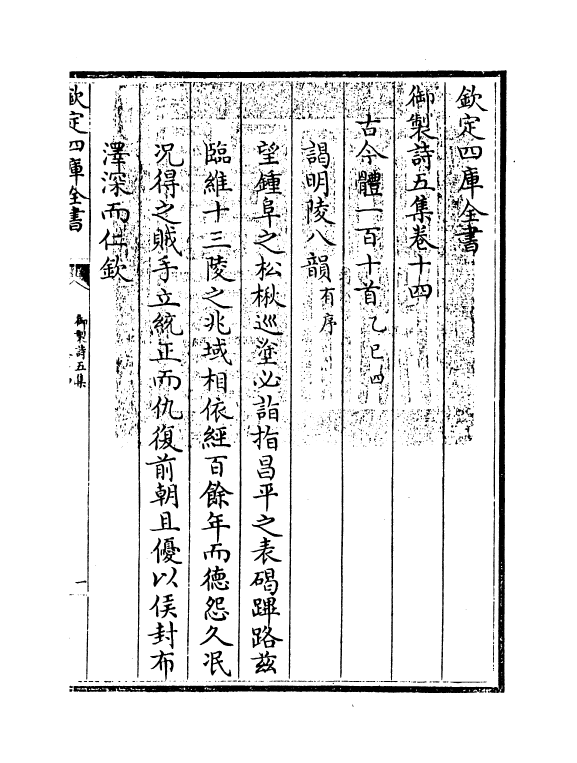 欽定四庫全書
御製詩五集卷十四
古今體一百十首乙巳四
謁明陵八韻有序
望鍾阜之松楸巡塗必詣指昌平之表碣蹕路兹
臨維十三陵之兆域相依經百餘年而德怨久泯
況得之賊手立統正而仇復前朝且優以侯封布
澤深而仁欽
欽定四庫全書
御製詩五集
一